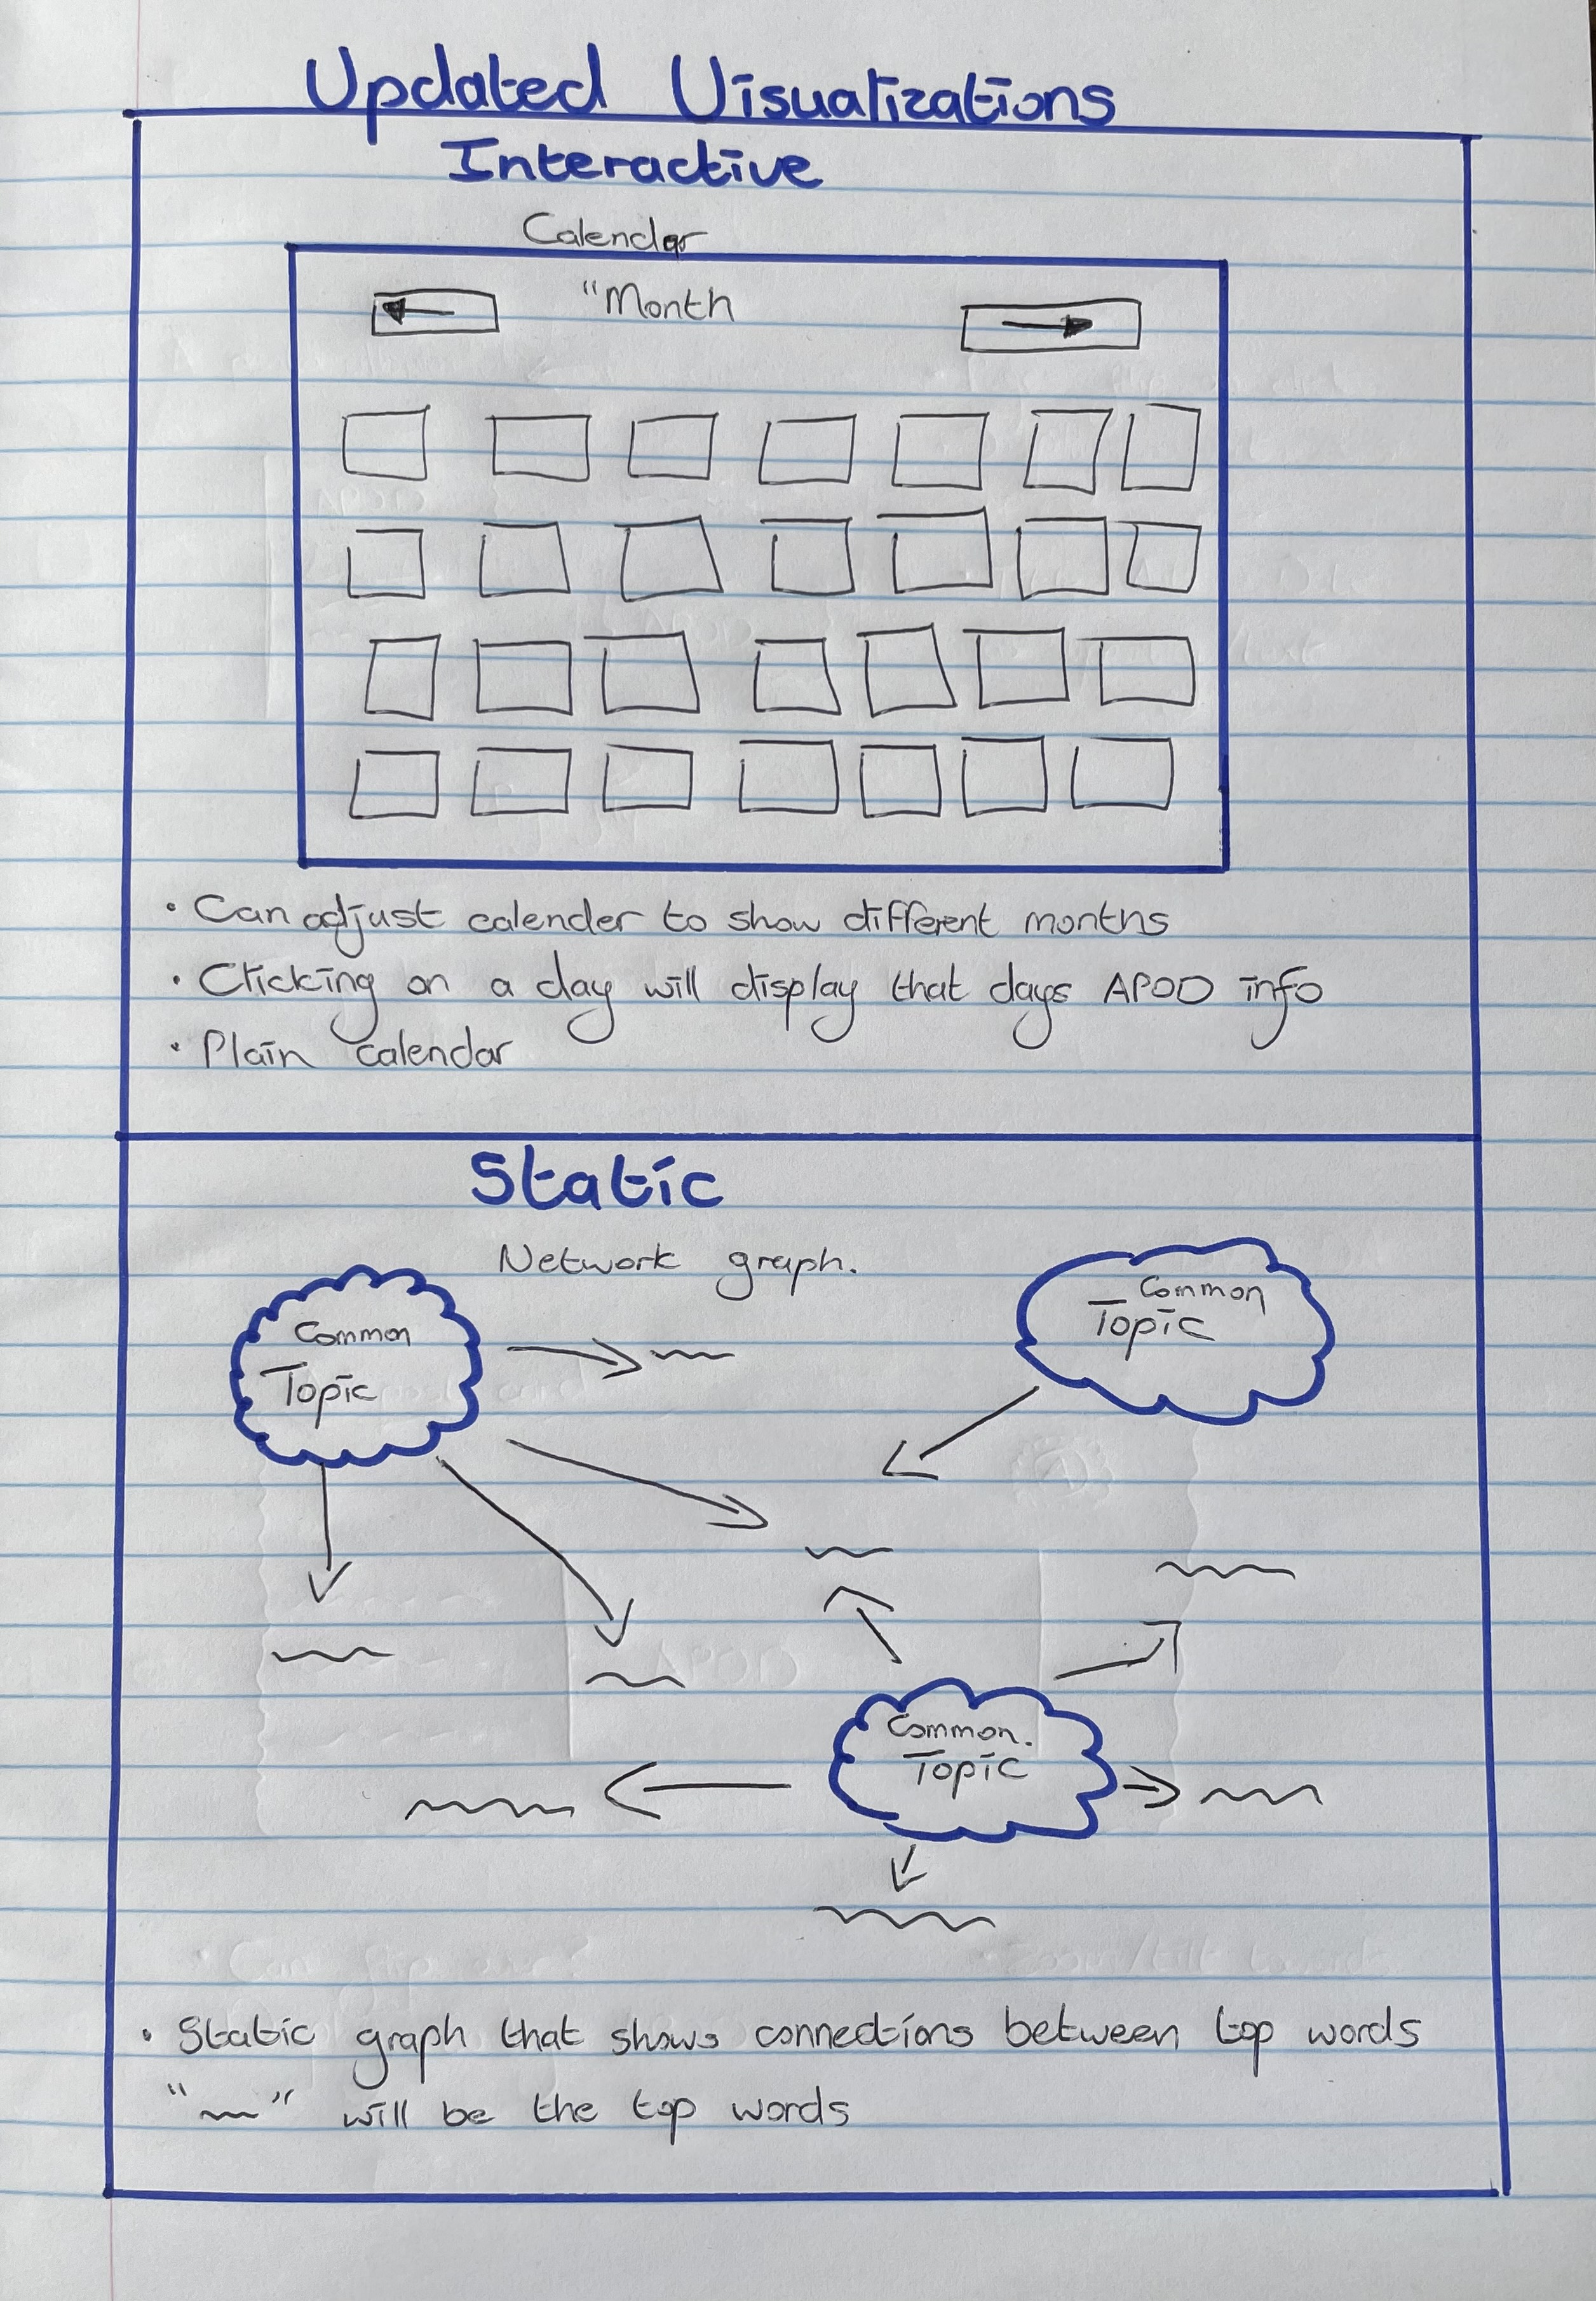 Updated Visualizations
Interactive
Calendar
"Month
• Can adjust calender to show different months
• Clicking on a day will display that days APOD info
• Plain calendar
Static
Network graph.
Common
Topic
Common
Topic
Common.
Topic
• Static graph that shows connections between top words
"~~" will be the top words